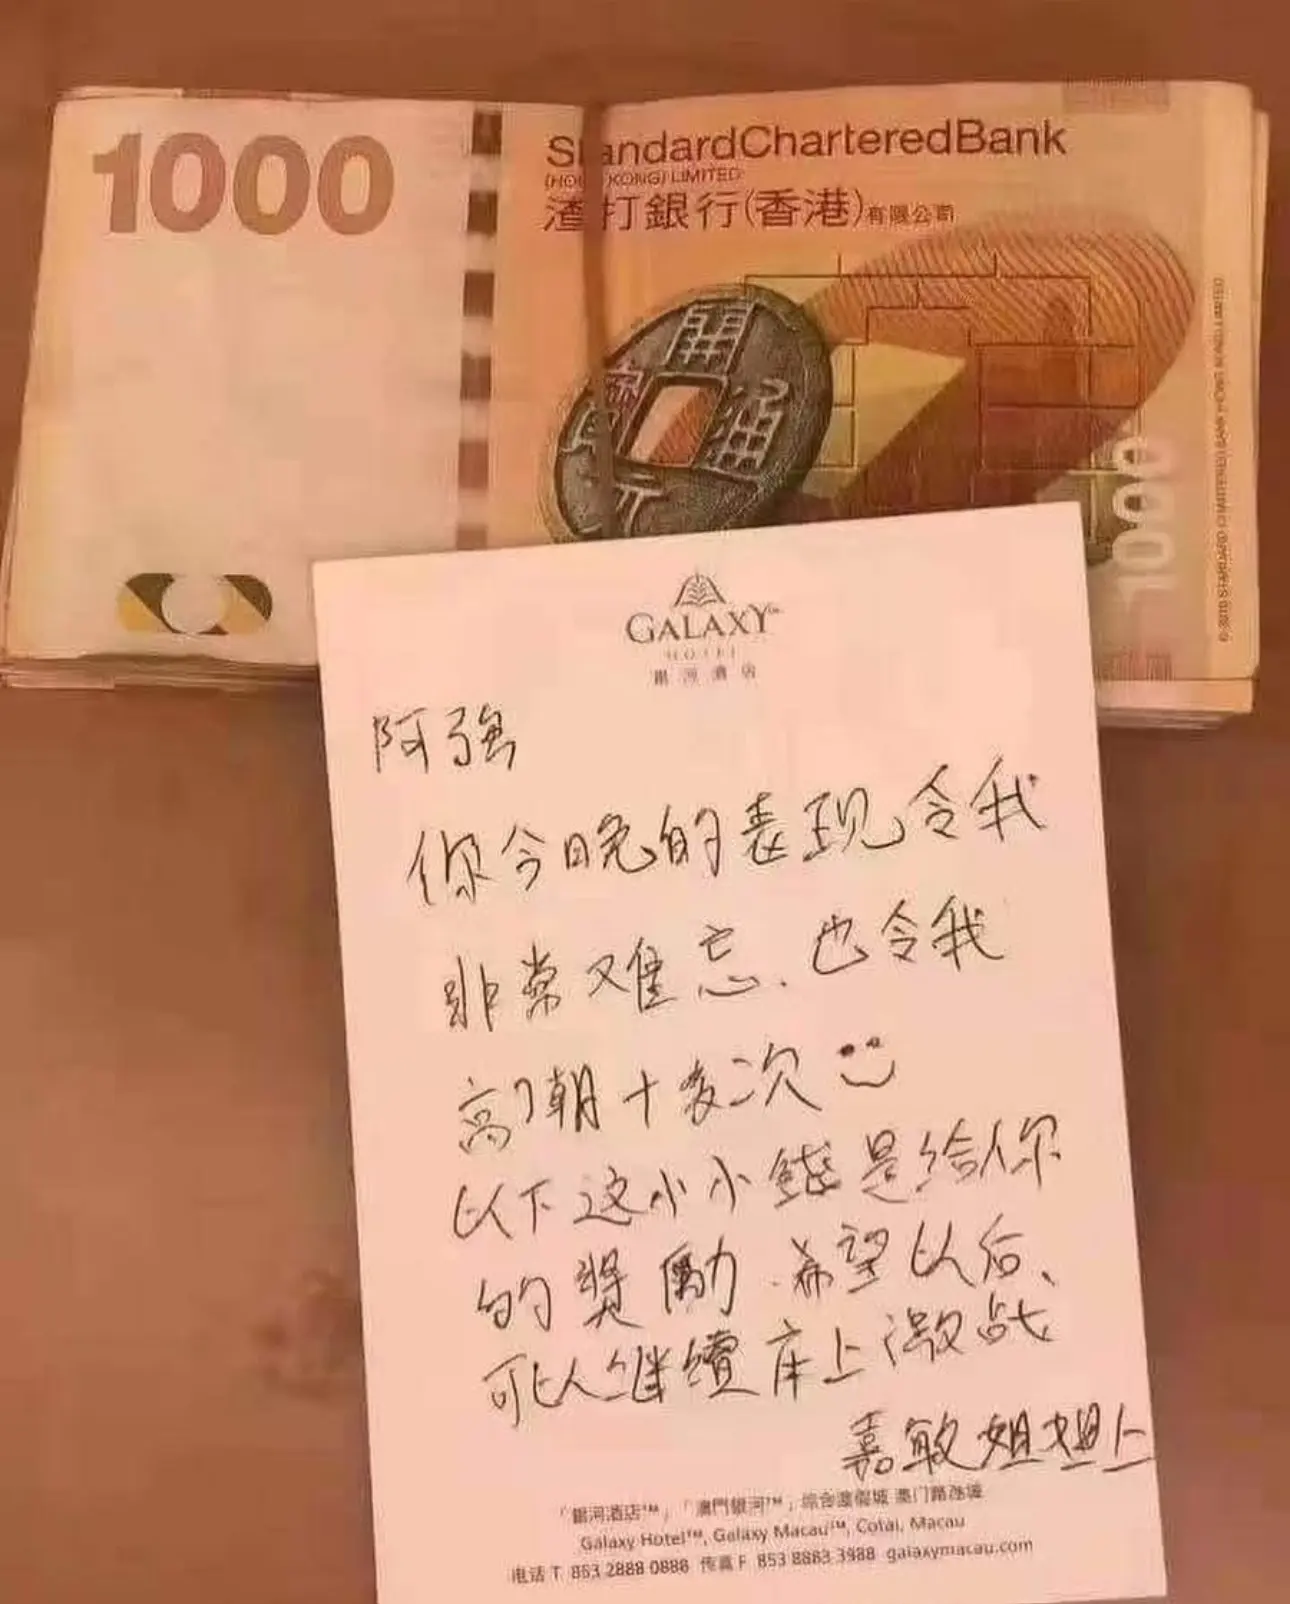 1000
StandardCharteredBank
(HONG KONG) LIMITED
渣打銀行(香港)有限公司
開
通
元
1000
© 2010 STANDARD CHARTERED BANK (HONG KONG) LIMITED
GALAXY™
HOTEL
銀河酒店
阿强
你今晚的表现令我
非常难忘.也令我
高潮十多次
以下这小小錢是给你
的獎励.希望以后、
可以继續床上激战
嘉敏姐姐上
「銀河酒店™」,「澳門銀河™」综合渡假城 澳门路氹城
Galaxy Hotel™, Galaxy Macau™, Cotai, Macau
电话 T 853 2888 0888 传真 F 853 8883 3988 galaxymacau.com